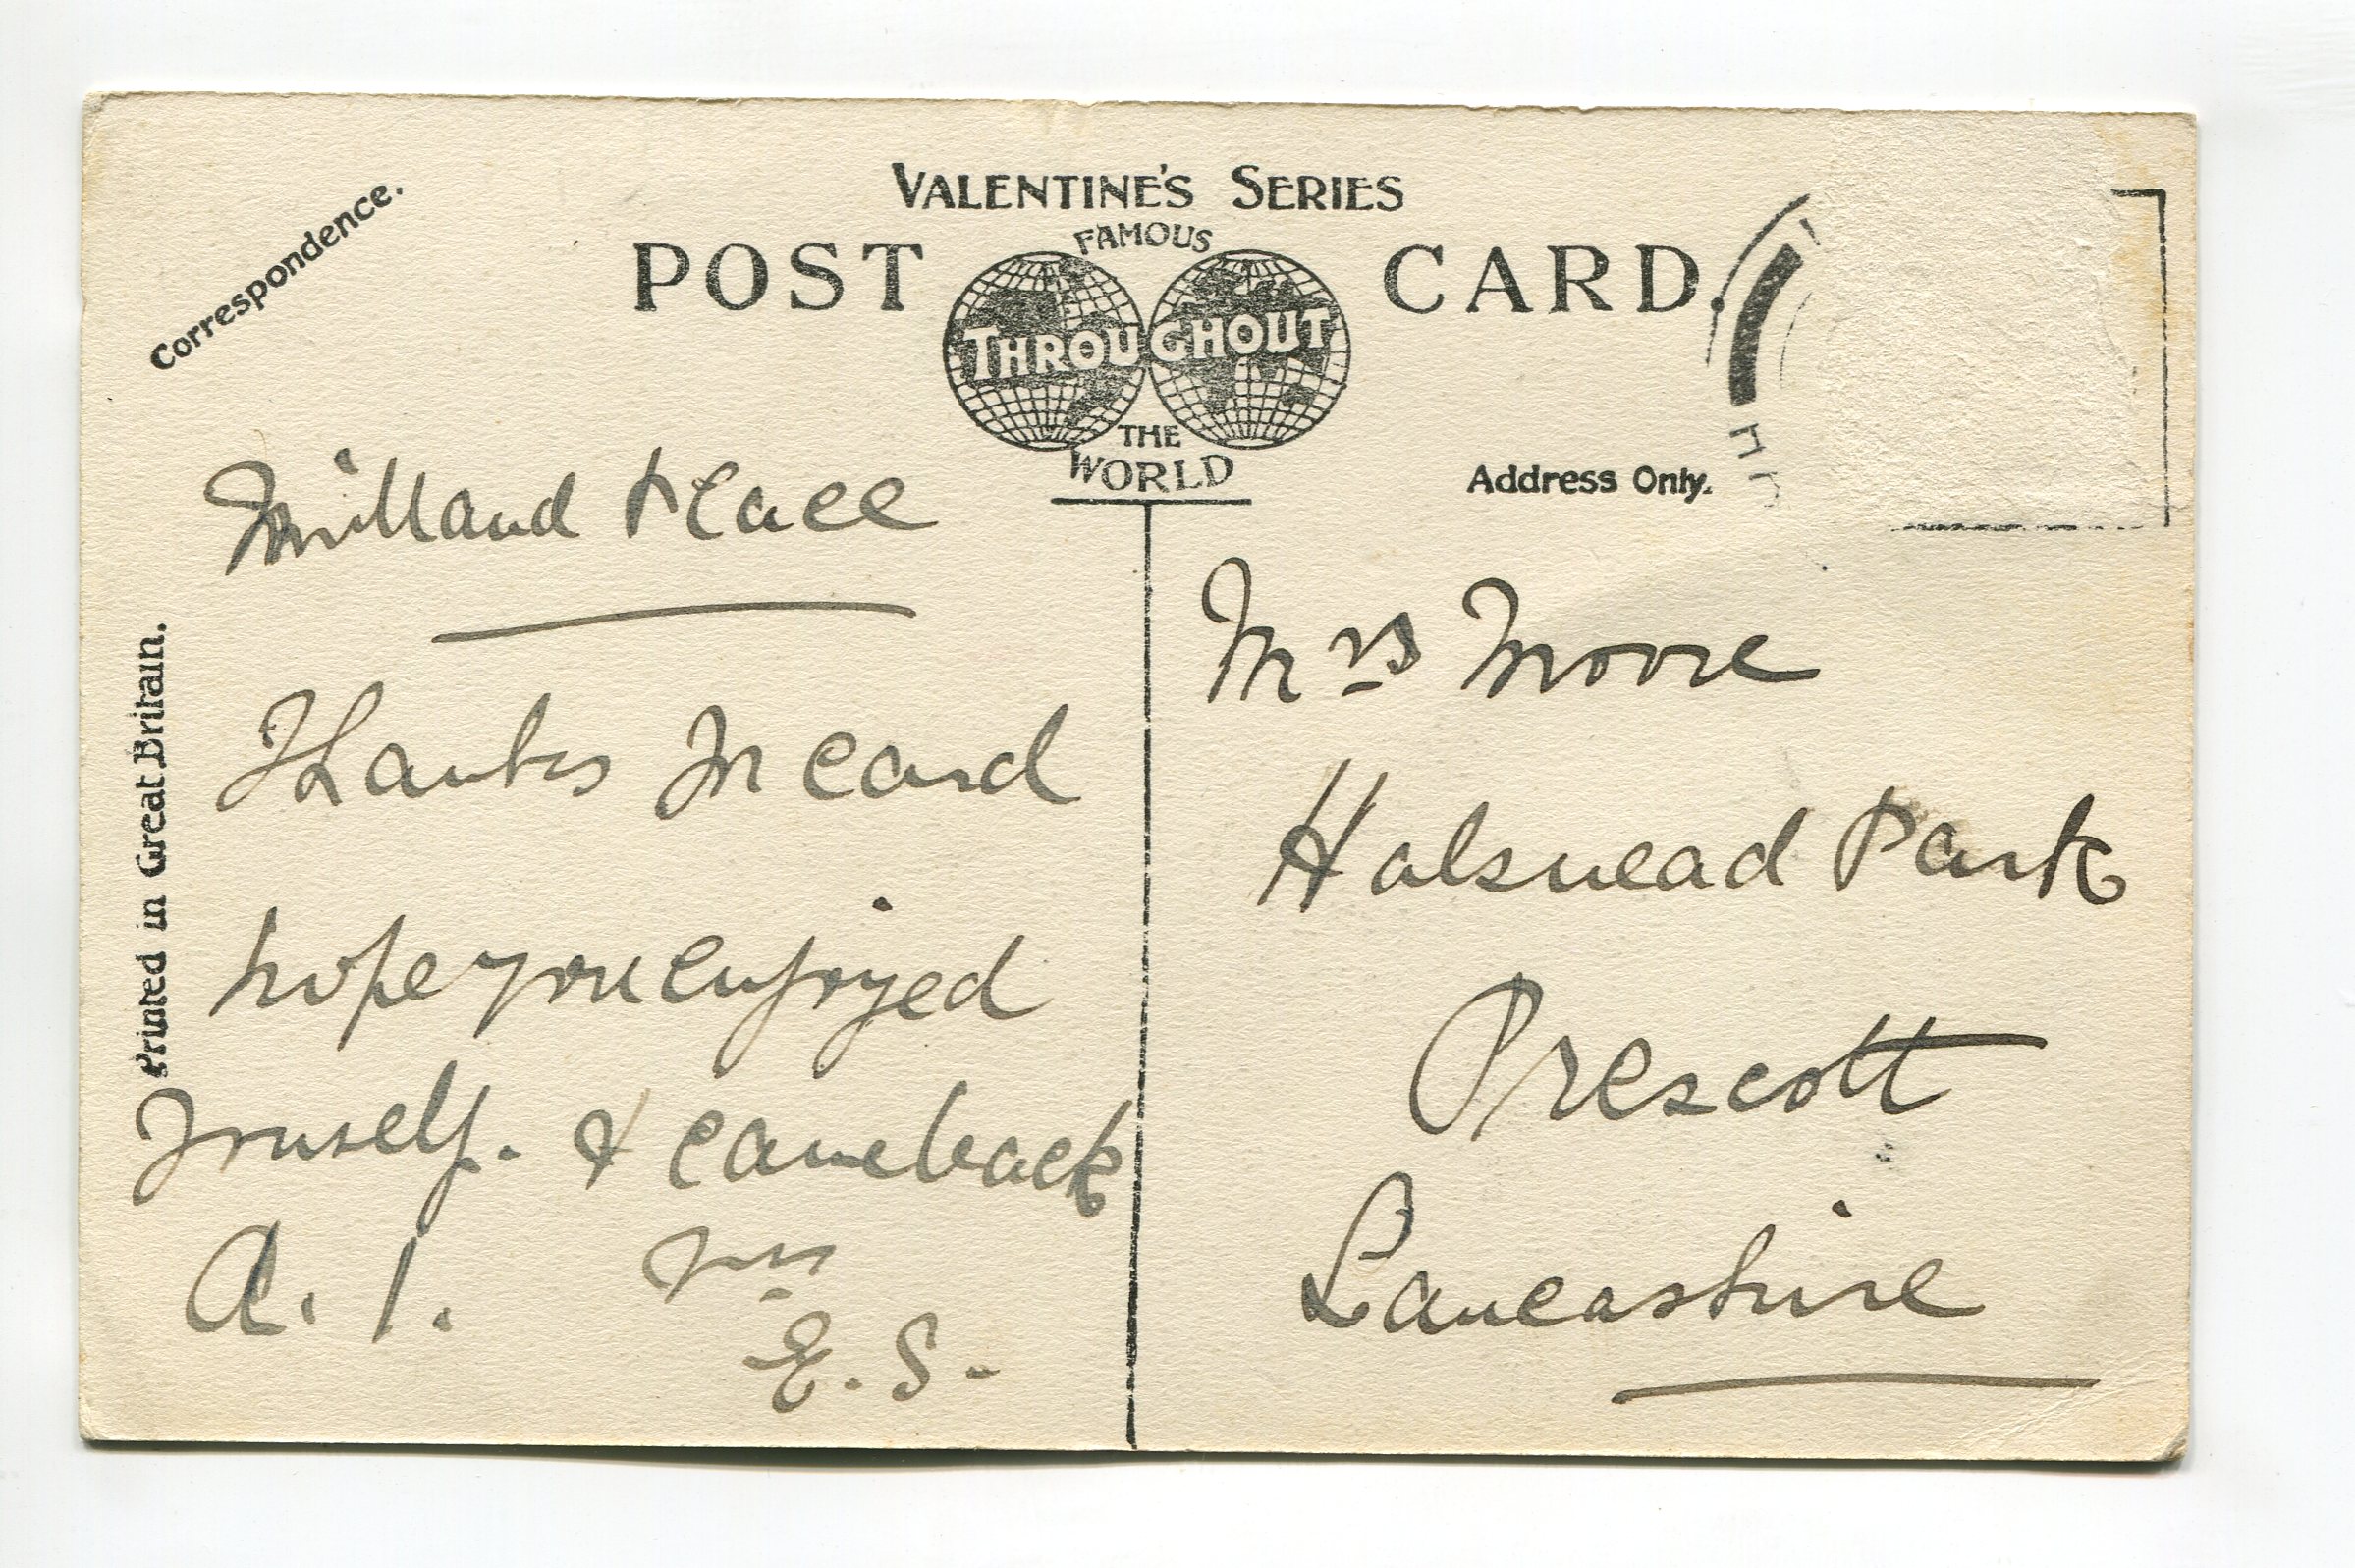 Correspondence.
VALENTINE'S SERIES
FAMOUS
POST CARD.
THROUGHOUT
THE
WORLD
Address Only.
Printed in Great Britain.
Milland Place
Thanks for card
hope you enjoyed
yourself. & came back
A. 1.
E. S.
Mrs Moore
Halsnead Park
Prescott
Lancashire